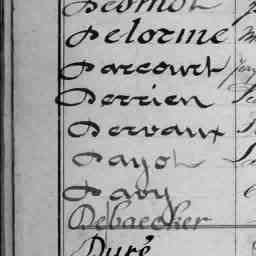 Delorme
Darcourt
Derrien
Dervaux
Dayot
Davy
Debaecker
Duré